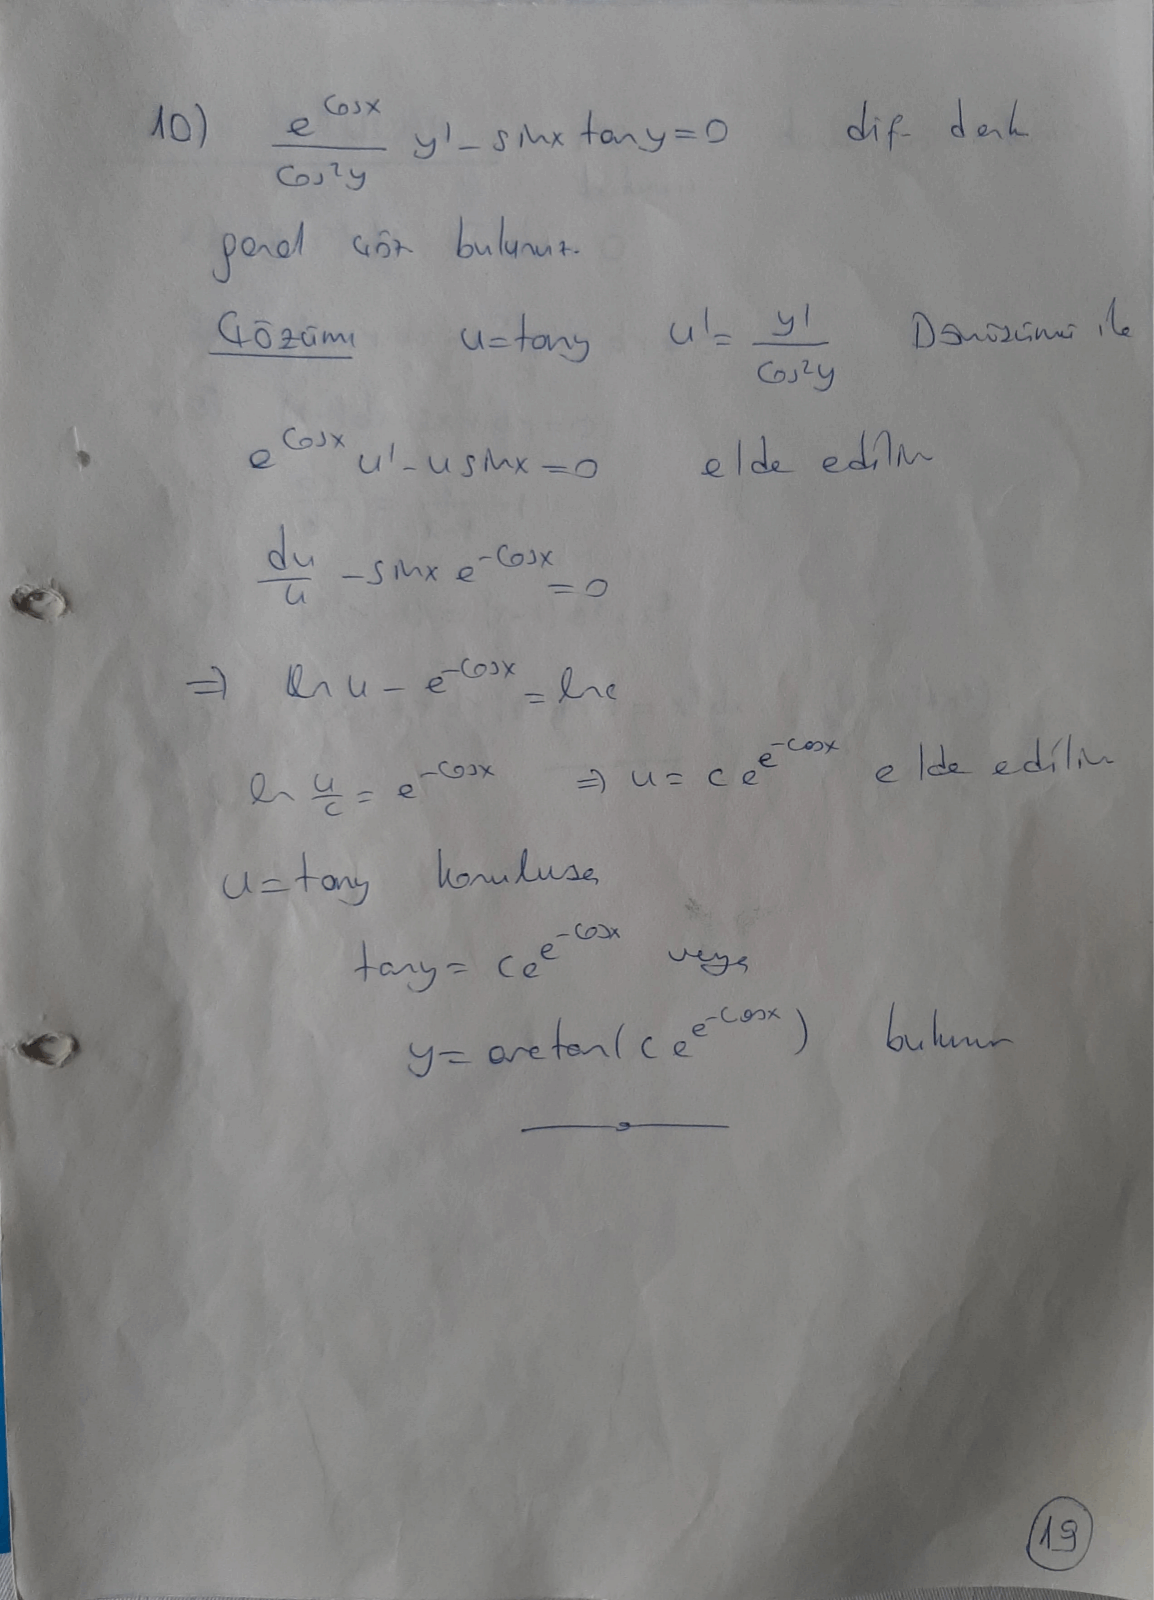 10) e^cosx / cos²y y' - sinx tany = 0 dif. denk
genel çöz bulunuz.
Çözüm u = tany u' = y' / cos²y Dönüşümü ile
e^cosx u' - u sinx = 0 elde edilir
du/u - sinx e^-cosx = 0
⇒ ln u - e^-cosx = lnc
ln u/c = e^-cosx ⇒ u = c e^e^-cosx elde edilir
u = tany konulursa
tany = c e^e^-cosx veya
y = arctan(c e^e^-cosx) bulunur
19